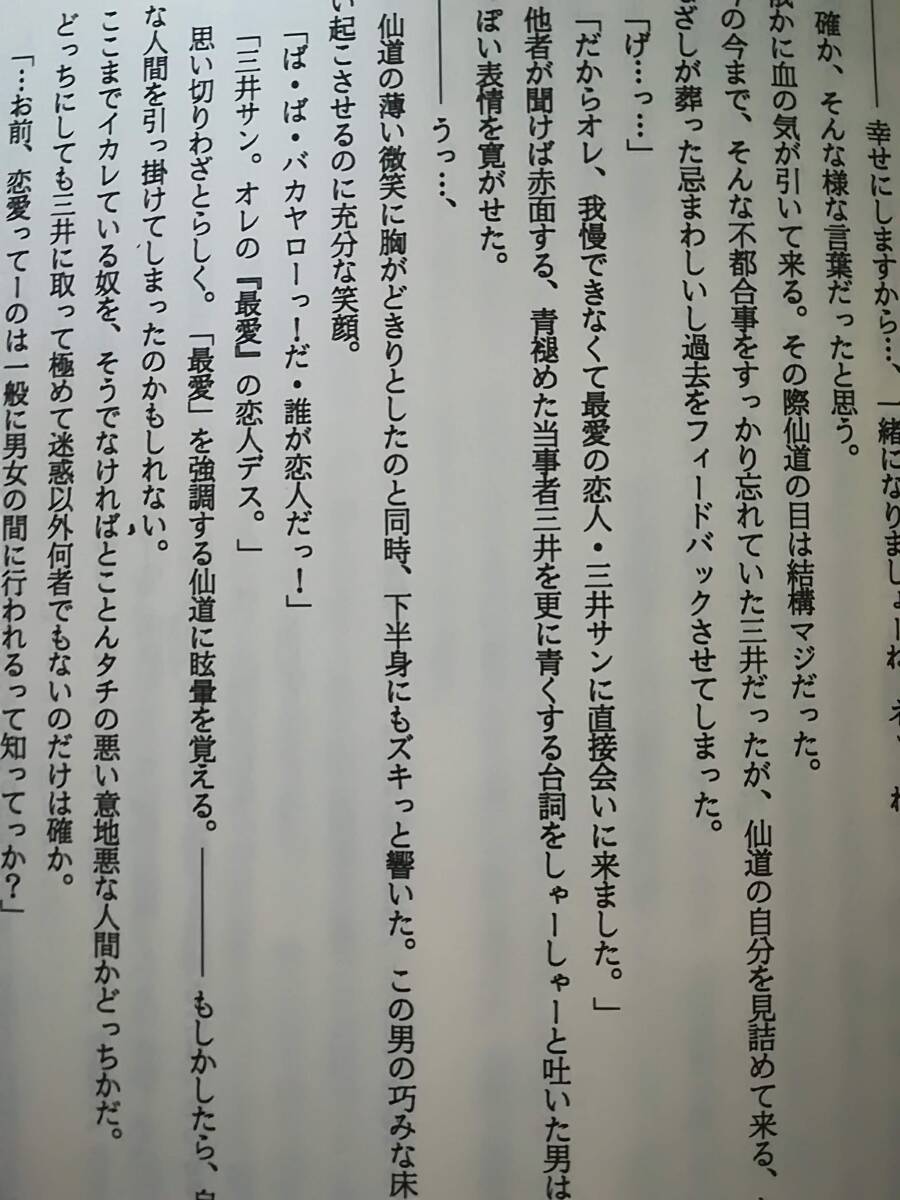 ―― 幸せにしますから…、一緒になりましょーね
確か、そんな様な言葉だったと思う。
かに血の気が引いて来る。その際仙道の目は結構マジだった。
の今まで、そんな不都合事をすっかり忘れていた三井だったが、仙道の自分を見詰めて来る、
ざしが葬った忌まわしいし過去をフィードバックさせてしまった。
「げ…っ…」
「だからオレ、我慢できなくて最愛の恋人・三井サンに直接会いに来ました。」
他者が聞けば赤面する、青褪めた当事者三井を更に青くする台詞をしゃーしゃーと吐いた男は
っぽい表情を寛がせた。
――― うっ…、
仙道の薄い微笑に胸がどきりとしたのと同時、下半身にもズキっと響いた。この男の巧みな床
い起こさせるのに充分な笑顔。
「ば・ば・バカヤローっ！だ・誰が恋人だっ！」
「三井サン。オレの『最愛』の恋人デス。」
思い切りわざとらしく。「最愛」を強調する仙道に眩暈を覚える。――― もしかしたら、
な人間を引っ掛けてしまったのかもしれない。
ここまでイカレている奴を、そうでなければとことんタチの悪い意地悪な人間かどっちかだ。
どっちにしても三井に取って極めて迷惑以外何者でもないのだけは確か。
「…お前、恋愛ってーのは一般に男女の間に行われるって知ってっか？」